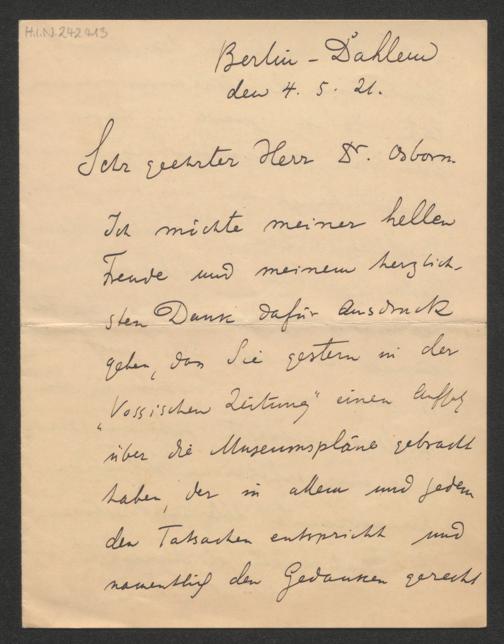 H.I.N. 242413
Berlin-Dahlem
den 4. 5. 21.
Sehr geehrter Herr Dr. Osborn.
Ich möchte meiner hellen
Freude und meinem herzlich-
sten Dank dafür Ausdruck
geben, dass Sie gestern in der
„Vossischen Zeitung" einen Aufsatz
über die Museumspläne gebracht
haben, der in allem und jedem
den Tatsachen entspricht und
namentlich den Gedanken gerecht